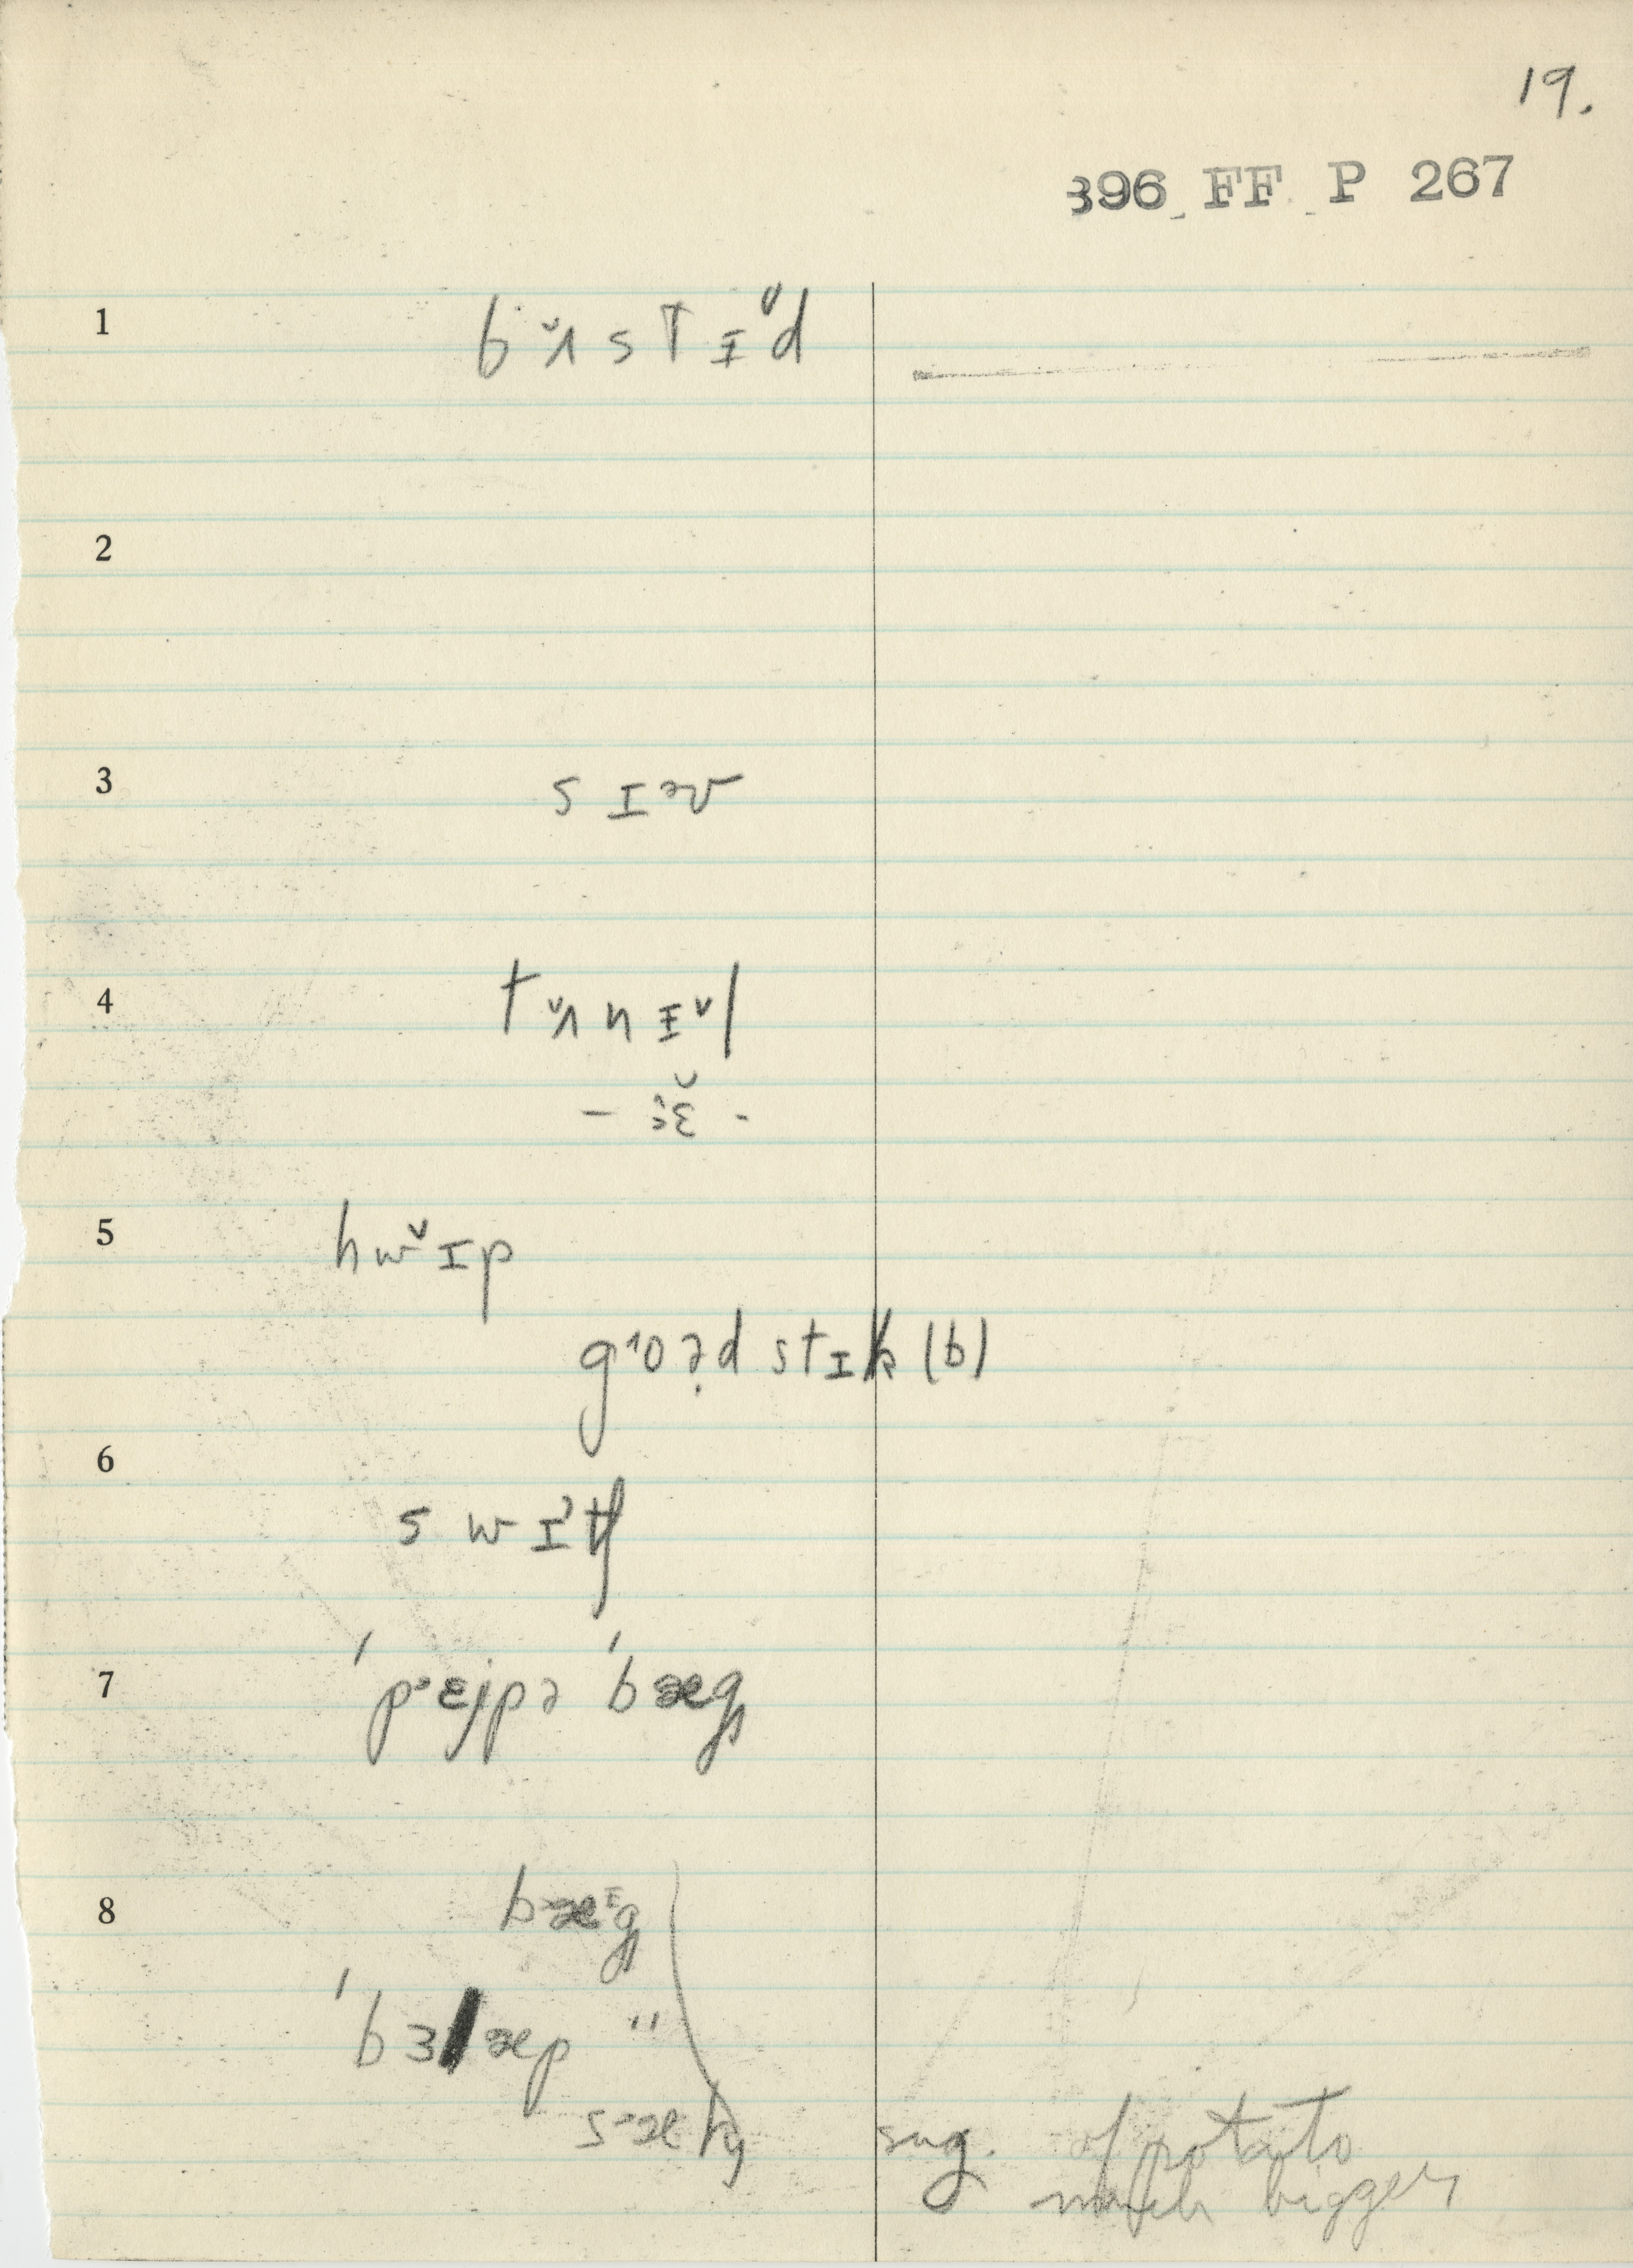 19.
396 FF P 267
1 bʌ˅stɪ˅d
2
3 sɪəv
4 tʌ˅nɪ˅l
- ɜ̆ -
5 hw˅ɪp
goəd stɪk (b)
6 swɪtʃ
7 ˈpɛjpə ˈbæg
8 bæᴵg
ˈbɜlæp "
sæk
sug. of potato
much bigger